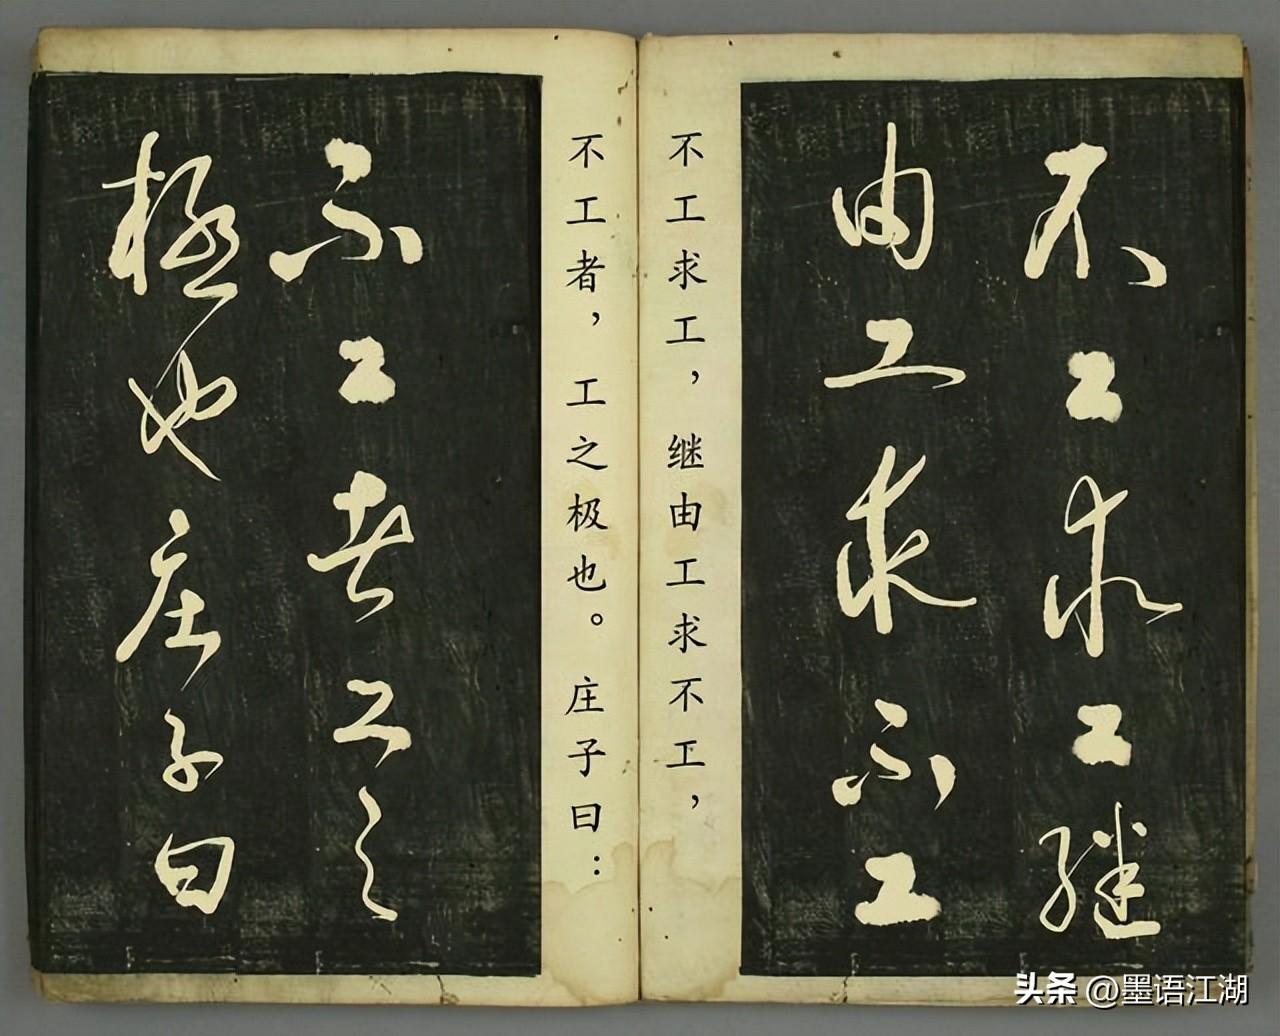 不工求工继
由工求不工
不工求工，继由工求不工，
不工者，工之极也。庄子曰：
不工者工之
極也庄子曰
头条 @墨语江湖